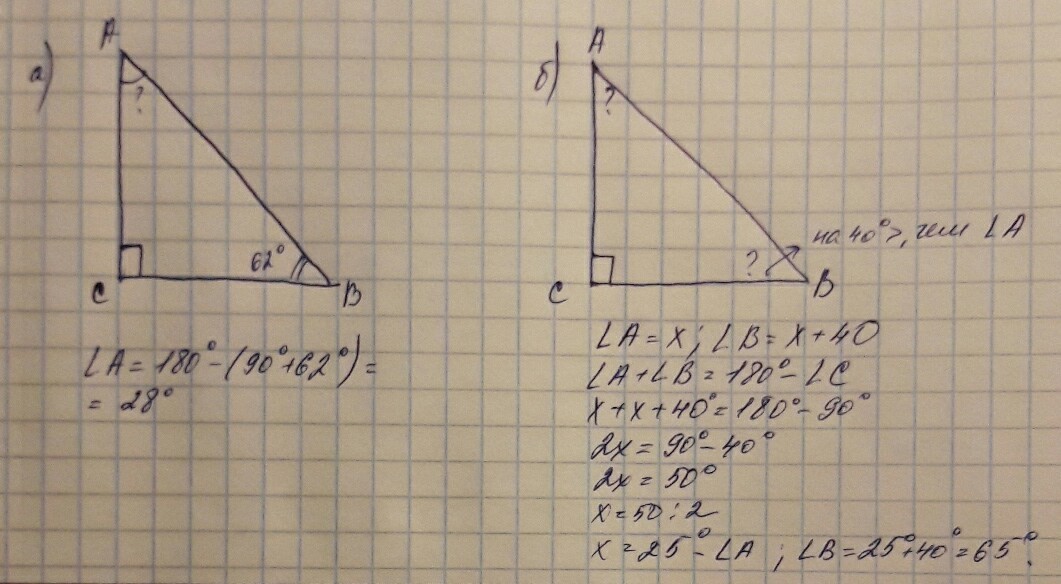 а)
A
?
62°
C
B
∠A = 180° - (90° + 62°) =
= 28°
б)
A
?
на 40° >, чем ∠A
?
C
B
∠A = x; ∠B = x + 40
∠A + ∠B = 180° - ∠C
x + x + 40° = 180° - 90°
2x = 90° - 40°
2x = 50°
x = 50 : 2
x = 25° - ∠A ; ∠B = 25° + 40° = 65°.